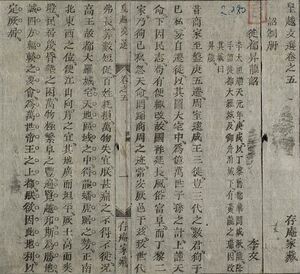 皇越文選卷之五
存庵家藏
詔制册
徙都昇龍詔
李太祖順天元年
昔商家至盤庚五遷周室迨成王三徙豈三代之數君徇于
己私妄自遷徙以其圖大宅中為億萬世子孫之計上謹天
命下因民志苟有便輒改故國祚延長風俗富阜而丁黎二
家乃徇己私忽天命罔蹈商周之迹常安厥邑于兹致世代
皇越文選
卷之五
一
存庵家藏
弗長算數短促百姓耗損萬物失宜朕甚痛之不得不徙况
高王故都大羅城宅天地區域之中得龍蟠虎踞之勢正南
北東西之位便江山向背之宜其地廣而坦平厥土高而爽
塏民居蔑昏墊之困萬物極繁阜之豐遍覽越邦斯為勝地
誠四方輻輳之要會為萬世帝王之上都朕欲因此地利以
定厥居